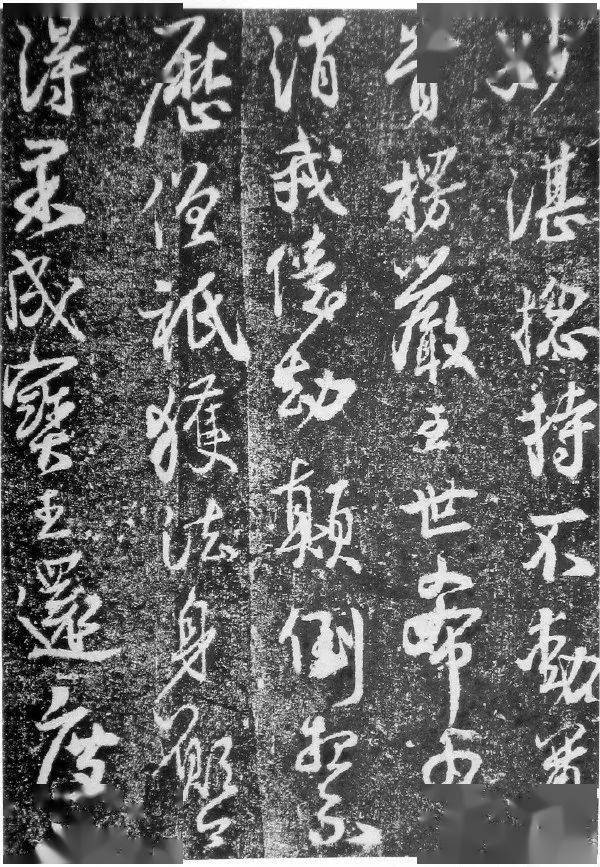 妙湛揔持不動尊
首楞嚴王世希有
消我億劫顛倒想不
歷僧祇獲法身願今
得果成寶王還度